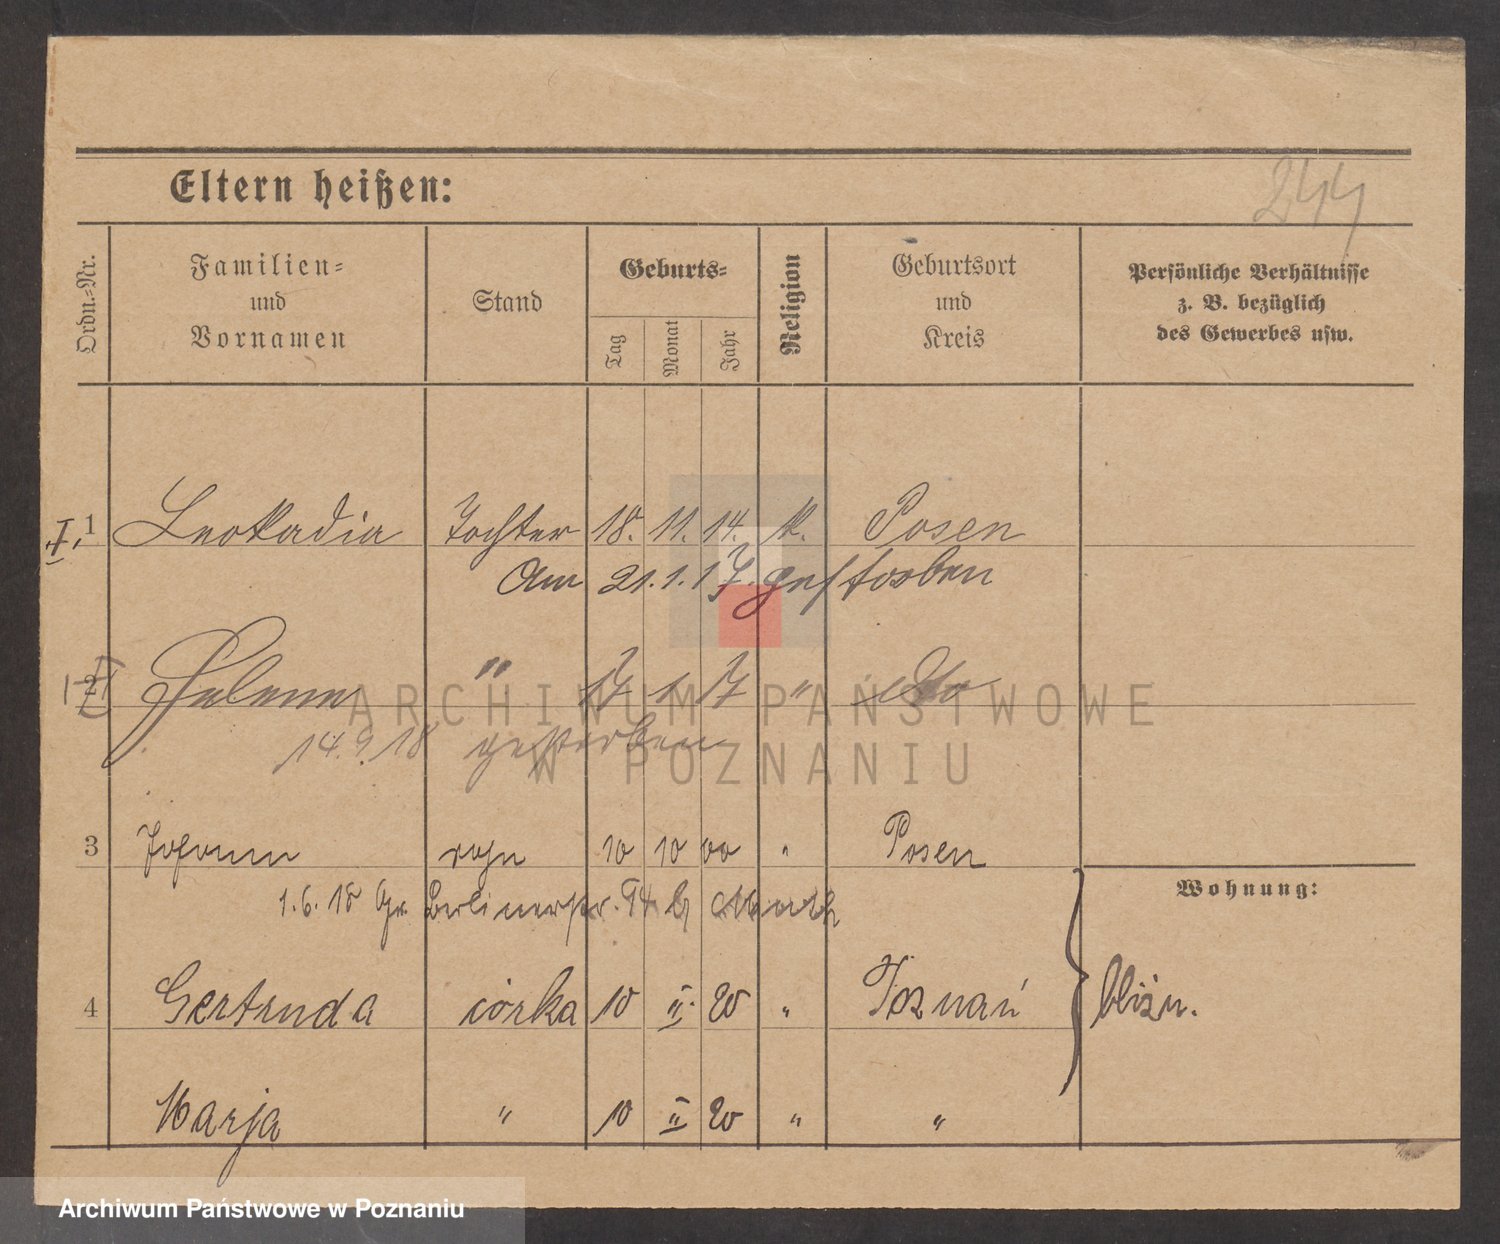 Eltern heißen:
244
Ordn.-Nr.
Familien-
und
Vornamen
Stand
Geburts-
Tag
Monat
Jahr
Religion
Geburtsort
und
Kreis
Persönliche Verhältnisse
z. B. bezüglich
des Gewerbes usw.
I. 1 Leokadia Tochter 18. 11. 14. k. Posen
Am 21.1.17. gestorben
2 II Helene " 17 1. 17 " dto
14.9.18 gestorben
3 Johann 10 10 00 " Posen
Wohnung:
1.6.18 Gr. Berlinerstr. 94 b
4 Gertruda córka 10 II. 20 " Poznań bliźn.
Marja " 10 II 20 " "
ARCHIWUM PAŃSTWOWE
W POZNANIU
Archiwum Państwowe w Poznaniu